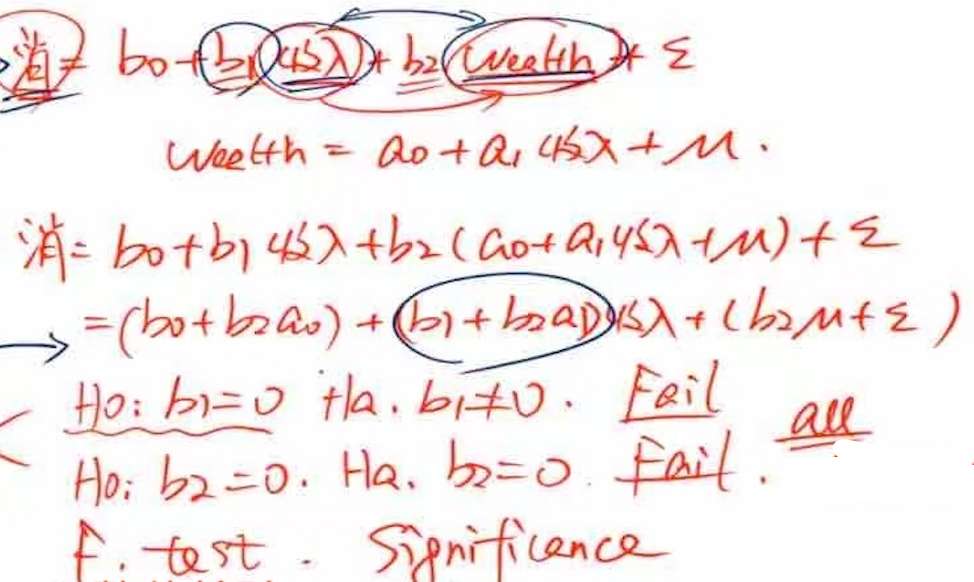 消 = b0 + b1 收入 + b2 Wealth + ε
Wealth = a0 + a1 收入 + μ .
消 = b0 + b1 收入 + b2 ( a0 + a1 收入 + μ ) + ε
= ( b0 + b2 a0 ) + ( b1 + b2 a1 ) 收入 + ( b2 μ + ε )
H0: b1 = 0 Ha. b1 ≠ 0 . Fail
all
H0: b2 = 0 . Ha. b2 = 0 . Fail .
F. test . Significance